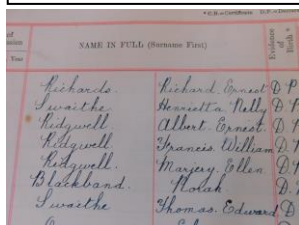 * C.B.=Certificate
of
Year
NAME IN FULL (Surname First)
Evidence of Birth *
Richards. Richard Ernest D P
Swaithe Henrietta Nelly D.
Ridgwell. Albert. Ernest. D.
Ridgwell Francis William D
Ridgwell. Marjery. Ellen D.
Blackband. Norah D.
Swaithe Thomas. Edward D